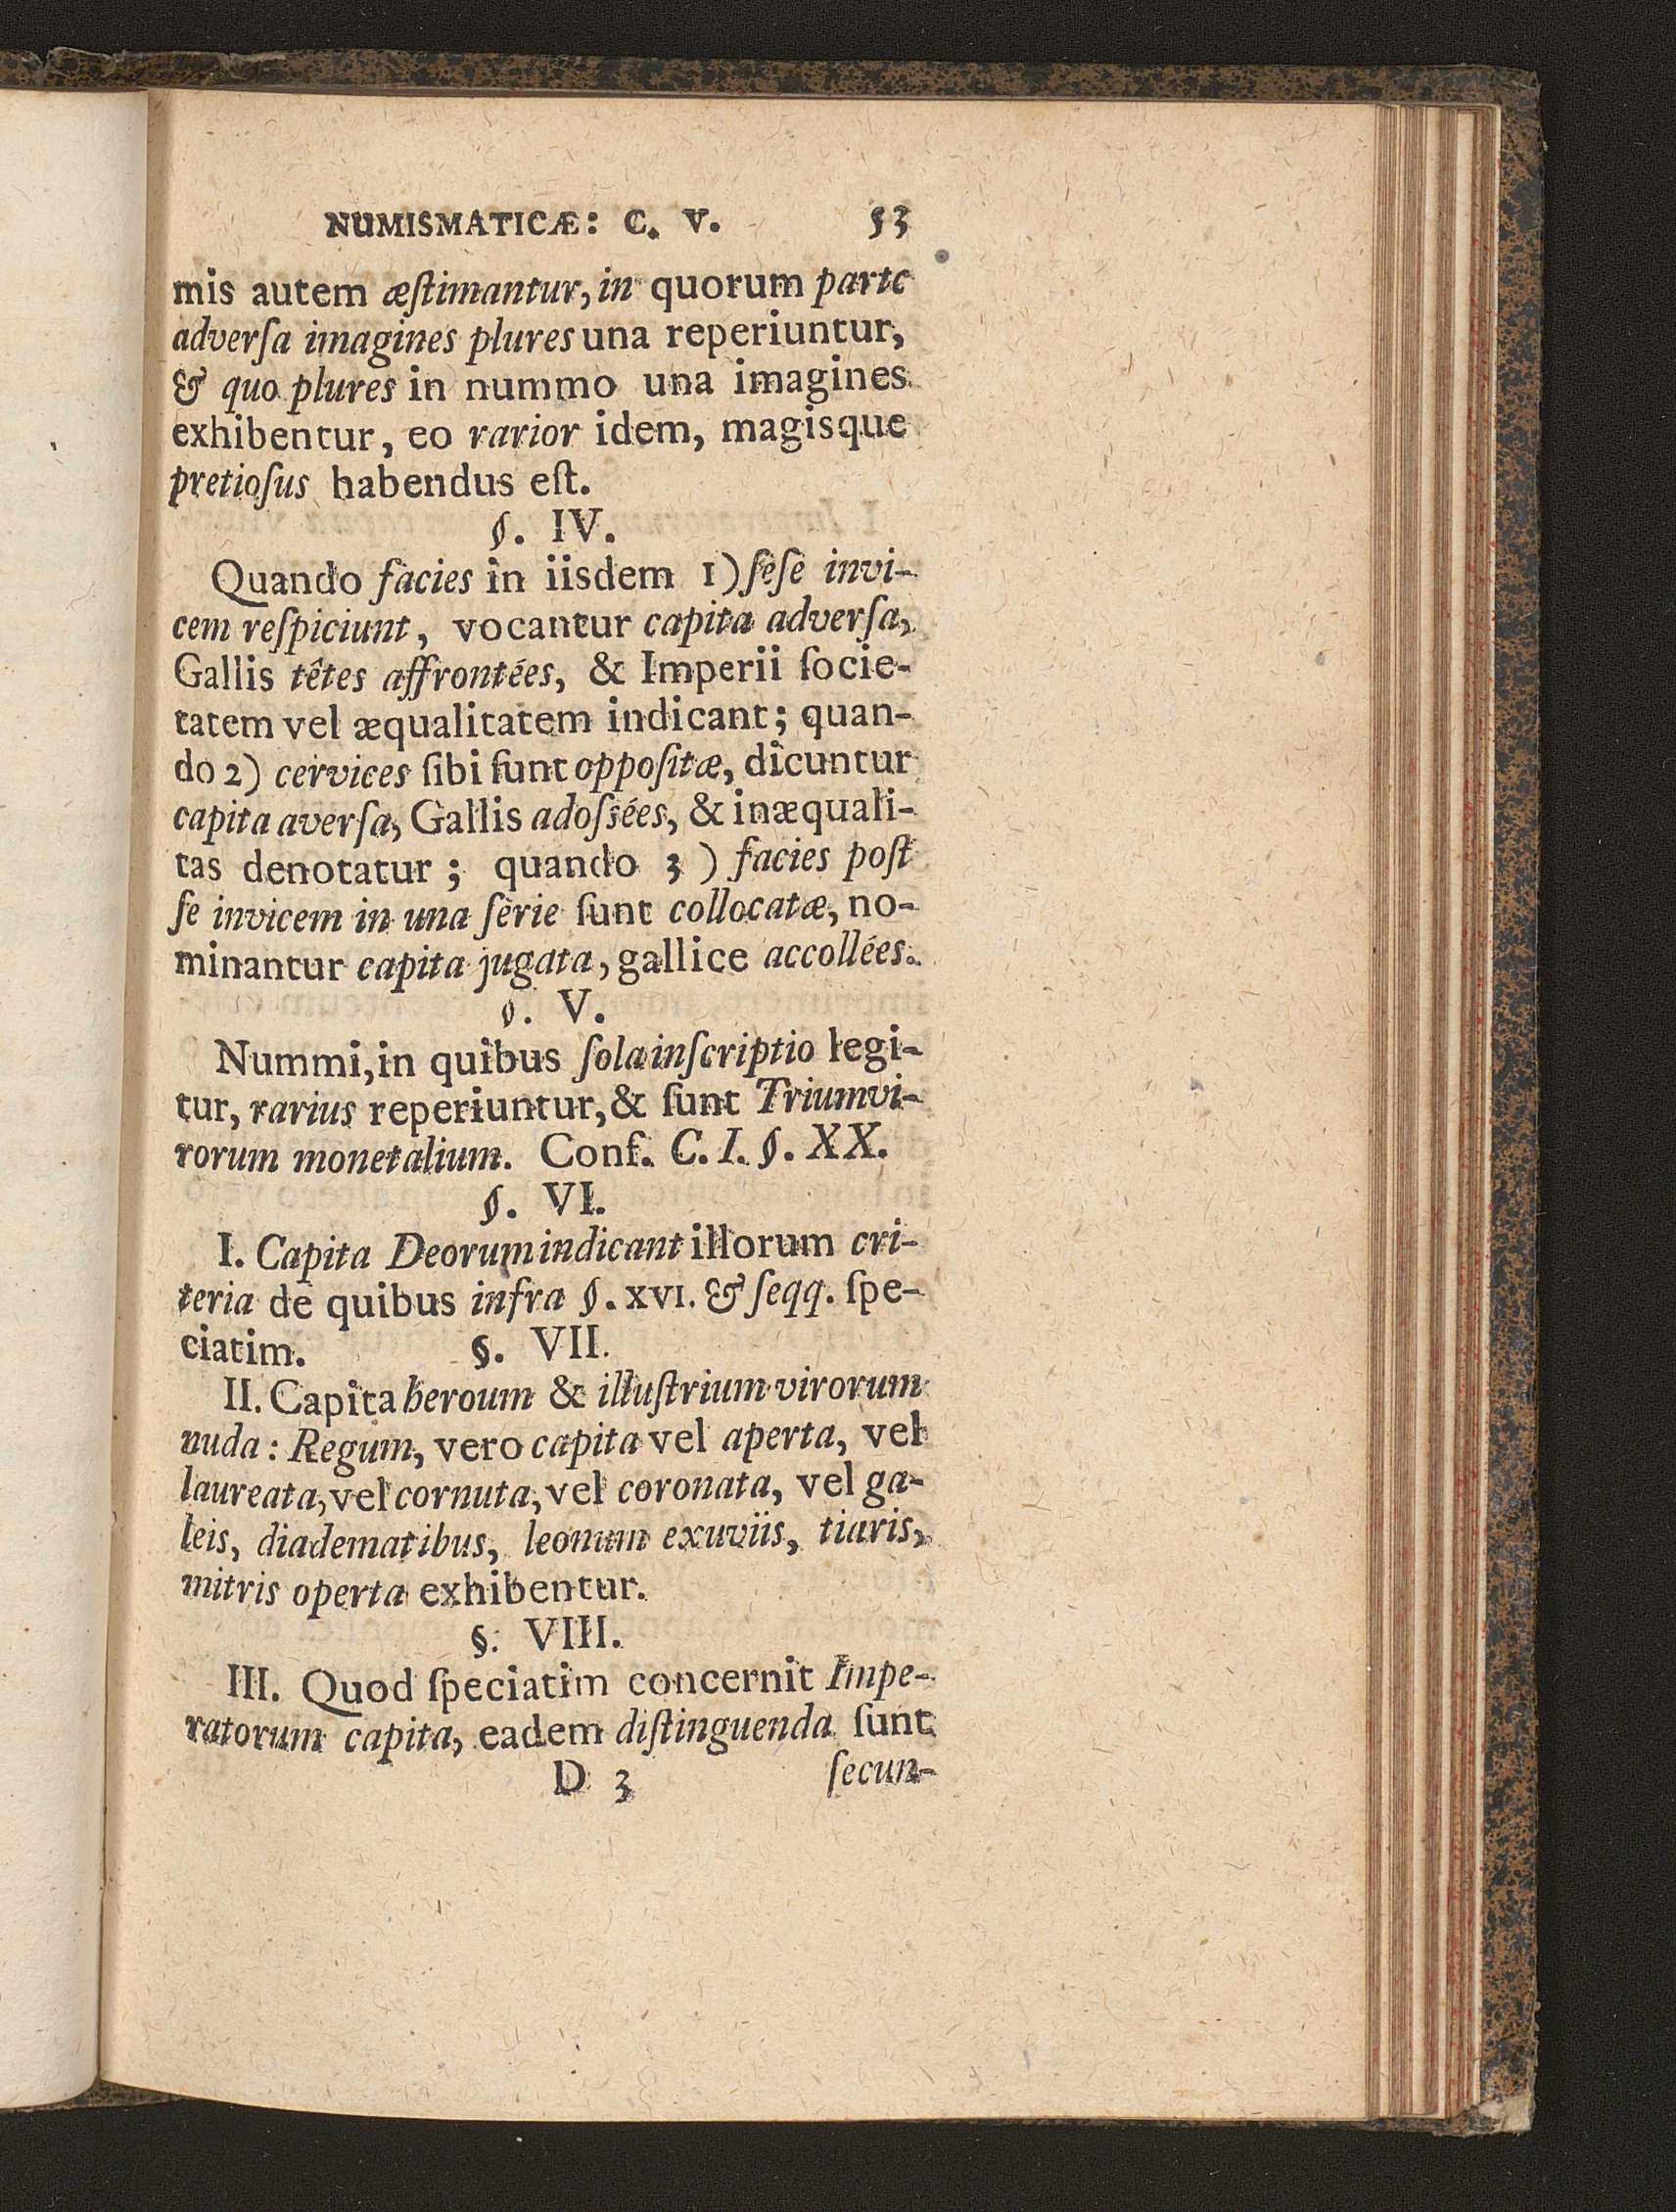 NUMISMATICÆ: C. V. 53
mis autem æſtimantur, in quorum parte
adverſa imagines plures una reperiuntur,
& quo plures in nummo una imagines
exhibentur, eo rarior idem, magisque
pretioſus habendus eſt.
§. IV.
Quando facies in iisdem 1) ſeſe invi-
cem reſpiciunt, vocantur capita adverſa,
Gallis têtes affrontées, & Imperii ſocie-
tatem vel æqualitatem indicant; quan-
do 2) cervices ſibi ſunt oppoſitæ, dicuntur
capita averſa, Gallis adoſsées, & inæquali-
tas denotatur; quando 3) facies poſt
ſe invicem in una ſerie ſunt collocatæ, no-
minantur capita jugata, gallice accollées.
§. V.
Nummi, in quibus ſola inſcriptio legi-
tur, rarius reperiuntur, & ſunt Triumvi-
rorum monetalium. Conf. C. I. §. XX.
§. VI.
I. Capita Deorum indicant illorum cri-
teria de quibus infra §. XVI. & ſeqq. ſpe-
ciatim. §. VII.
II. Capita heroum & illuſtrium virorum
nuda: Regum, vero capita vel aperta, vel
laureata, vel cornuta, vel coronata, vel ga-
leis, diadematibus, leonum exuviis, tiaris,
mitris operta exhibentur.
§. VIII.
III. Quod ſpeciatim concernit Impe-
ratorum capita, eadem diſtinguenda ſunt
D 3 ſecun-